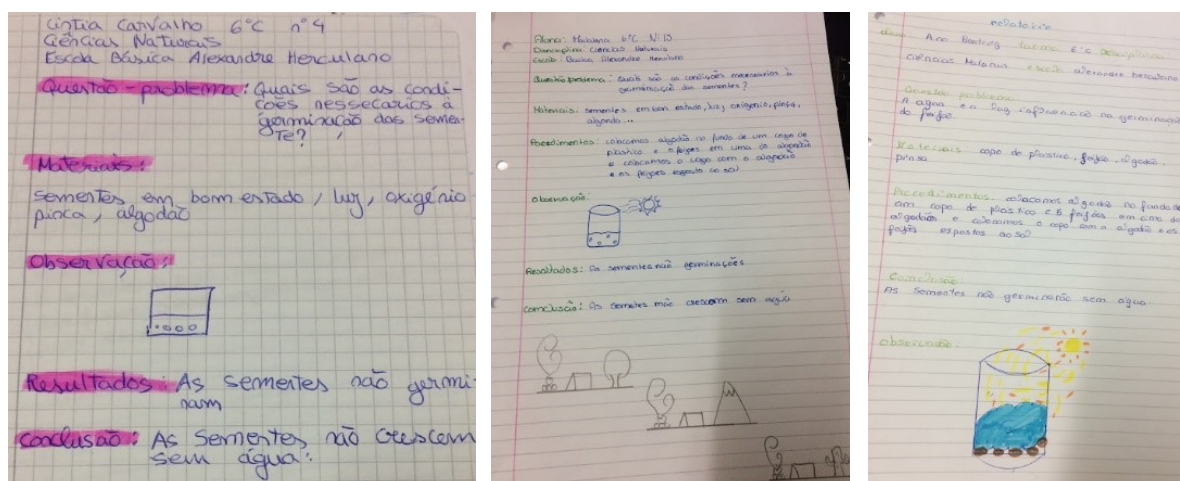 Cintia Carvalho 6ºC nº4
Ciências Naturais
Escola Básica Alexandre Herculano
Questão-problema: Quais são as condi-
ções nessecarios à
germinação das semen-
te?
Materiais:
Sementes em bom estado, luz, oxigénio
pinça, algodão
Observação:
Resultados: As sementes não germi-
nam
Conclusão: As Sementes não crescem
sem água.
Aluna: Madalena 6ºC Nº13
Disciplina: Ciências Naturais
Escola: Básica Alexandre Herculano
Questão problema: Quais são as condições necessarios à
germinação das sementes?
Materiais: sementes em bom estado, luz, oxigenio, pinça,
algodão...
Procedimentos: colocamos algodão no fundo de um copo de
plástico e 6 feijões em cima do algodão
e colocamos o copo com o algodão
e os feijões exposto ao sol
Observação:
Resultados: As sementes não germinações
Conclusão: As semetes não crescem sem água
relatorio
Ana Beatriz turma 6ºC Desciplina
ciências Naturais escola alexandre herculano
Questão problema:
A agua e a luz na germinação
do feijão.
Materiais copo de plastico, feijão, algodão,
pinsa
Procedimentos colocamos algodão no fundo de
um copo de plastico e 6 feijões em cima do
algodão e colocamos o copo com o algodão e os
feijões espostos ao sol
Conclusão
As sementes não germinarão sem agua
observação: